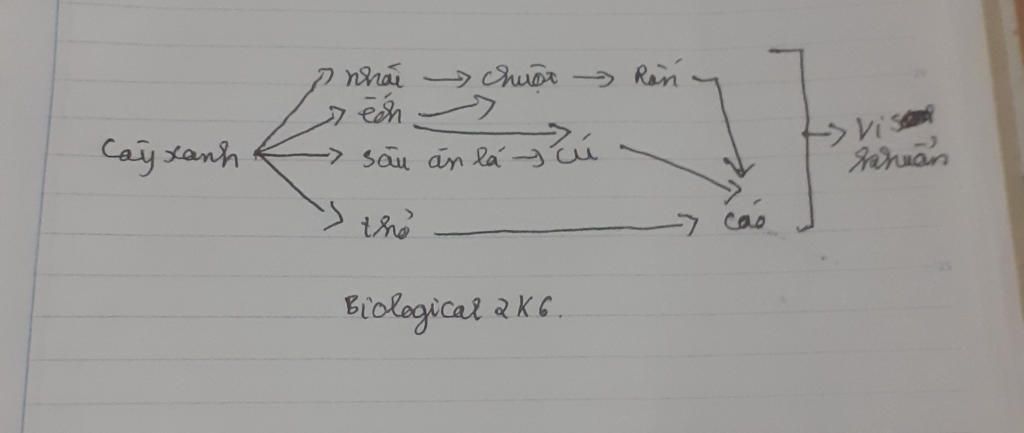 nhái → chuột → Rắn
ếch
Cây xanh
sâu ăn lá → Cú
thỏ → Cáo
Vi
khuẩn
Biological 2K6.